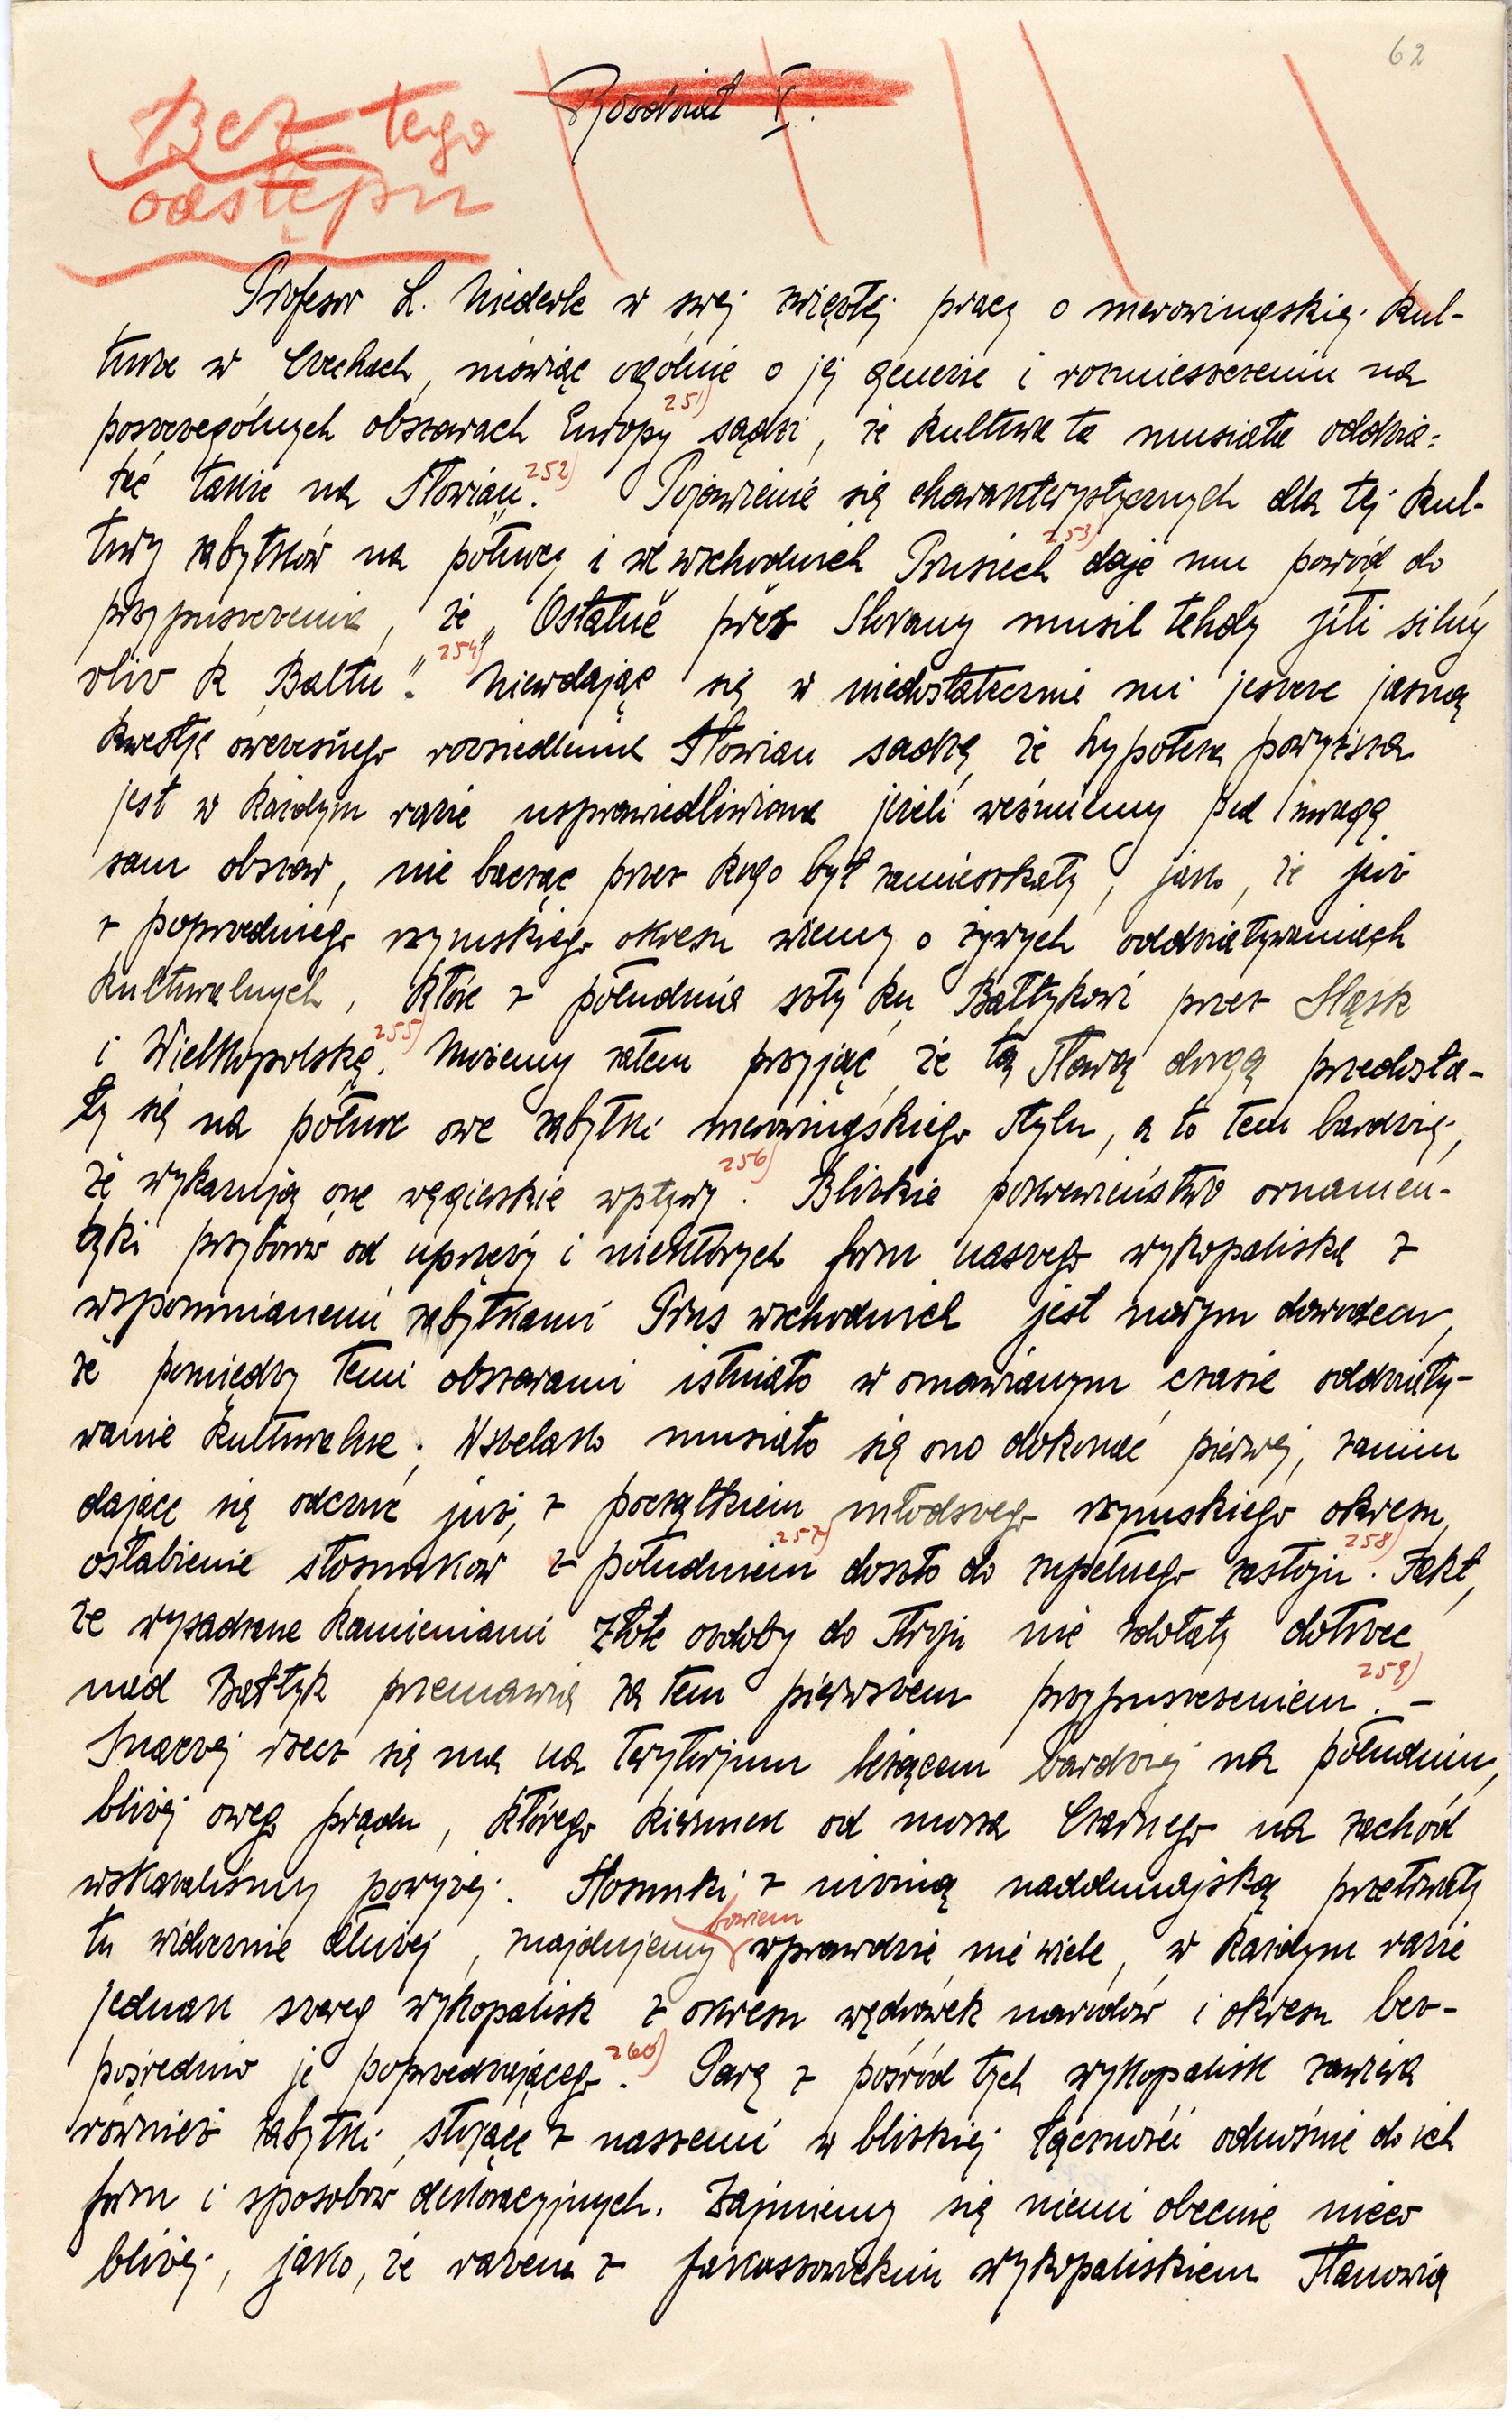 62
Bez tego
odstępu
Rozdział V.
Profesor L. Niederle w swej zwięzłej pracy o merowingskiej kul-
turze w Czechach, mówiąc ogólnie o jej genezie i rozmieszczeniu na
poszczególnych obszarach Europy 251) sądzi, że kultura ta musiała oddzia-
łać także na Słowian. 252) Pojawienie się charakterystycznych dla tej kul-
tury zabytków na północy i we wschodnich Prusiech 253) daje mu powód do
przypuszczenia, że „Ostatně přes Slovany musil tehdy jíti silný
vliv k Baltu“. 254) Niewdając się w niedostatecznie mi jeszcze jasną
kwestję ówczesnego rozsiedlenia Słowian sądzę, że hypoteza powyższa
jest w każdym razie usprawiedliwiona jeżeli weźmiemy pod uwagę
sam obszar, nie bacząc przez kogo był zamieszkały, jako, że już
z poprzedniego rzymskiego okresu wiemy o żywych oddziaływaniach
kulturalnych, które z południa szły ku Bałtykowi przez Śląsk
i Wielkopolskę. 255) Możemy zatem przyjąć że tą starą drogą przedosta-
ły się na północ owe zabytki merowingskiego stylu, a to tem bardziej,
że wykazują one węgierskie wpływy 256). Blizkie pokrewieństwo ornamen-
tyki przyborów od uprzęży i niektórych form naszego wykopaliska z
wspomnianemi zabytkami Prus wschodnich jest nowym dowodem,
że pomiędzy temi obszarami istniało w omawianym czasie oddziały-
wanie kulturalne. Wszelako musiało się ono dokonać pierwej, zanim
dające się odczuć już, z początkiem młodszego rzymskiego okresu,
osłabienie stosunków z południem 257) doszło do zupełnego zastoju. 258) Fakt,
że wysadzane kamieniami złote ozdoby do stroju nie zdołały dotrzeć
nad Bałtyk przemawia za tem pierwszem przypuszczeniem. 259) –
Inaczej rzecz się ma na terytorjum leżącem bardziej na południu,
bliżej owego prądu, którego kierunek od morza Czarnego na zachód
wskazaliśmy powyżej. Stosunki z niziną naddunajską przetrwały
tu widocznie dłużej, znajdujemy bowiem wprawdzie nie wiele, w każdym razie
jednak szereg wykopalisk z okresu wędrówek narodów i okresu bez-
pośrednio je poprzedzającego. 260) Parę z pośród tych wykopalisk zawiera
również zabytki stojące z naszemi w blizkiej łączności odnośnie do ich
form i sposobów dekoracyjnych. Zajmiemy się niemi obecnie nieco
bliżej, jako, że razem z jakuszowickim wykopaliskiem stanowią